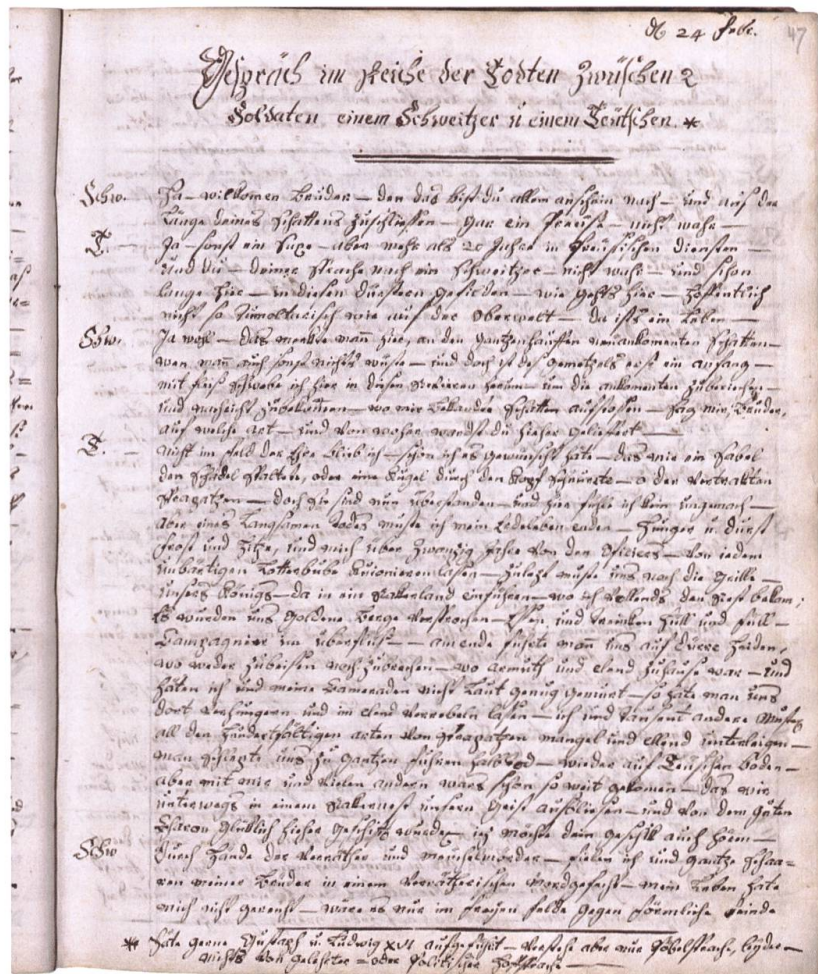 D 24 Febr.
47
Gespräch im Reiche der Todten Zwüschen 2
Soldaten einem Schweitzer u einem Teütschen. *
Schw. Ha – wilkomen Brüder – den das bist du allem anschein nach – und auf der
Länge deines Schattens zuschliessen – gar ein Preüsse – nicht wahr –
T. – Ja – sonst ein – aber mehr als 20 Jahre in Preüsischen diensten –
und du – deiner Sprache nach ein Schweitzer – nicht wahr – und schon
lange hier – in diesen düstern gefilden – wie gehts hier – hoffentlich
nicht so wie auf der Oberwelt – da ists ein Leben –
Schw. Ja wohl – das merkte man hier, an den gantzen haüffen neüankomenten Schatten –
wen man auch sonst nichts wüste – und doch ist des gemetzels erst ein anfang –
mit fleis schwebe ich hier in disen herum – um die ankomenten zubesehen –
und nachricht zubekomen – wo mir bekandte Schatten aufstossen – sag mir, Brüder,
auf welche art – und von woher wardst du hieher geliefert –
T. – nicht im feld der Ehre blieb ich – schon ich es gewünscht hate – das mir ein Sabel
den Schädel spaltete, oder eine Kugel durch den Kopf schnurrte – o der vertrakten
Strapatzen – doch sie sind nun überstanden – und hier fühle ich kein ungemach –
aber eines langsamen Todes muste ich mein Ledeleben enden – Hunger u. durst
frost und hitze, und mich über zwanzig Jahre von den Officiers – von jedem
unbärtigen Lotterbube kuionieren lasen – zuletzt muste uns noch die grille –
unsers Königs – da in ein Vatterland einführen – wo ich vollends den rest bekam;
Es wurden uns goldene Berge versprochen – Essen und Trinken hüll und füll –
Campagnier im überfluss – am ende führte man uns auf dürre heiden,
wo weder zubeisen noch zubrechen – wo armuth und elend zuhause war – und
häten ich und meine Cameraden nicht laut genug gemurt – so häte man uns
dort verhungern und im elend verrebeln lasen – ich und tausent andere musten
all den hundertfältigen arten von Strapatzen mangel und ellend unterleigen –
man schlepte uns zu gantzen führen halbtod – wieder auf Teütschen boden –
aber mit mir und vielen andern wars schon so weit gekomen – das wir
unterwegs in einem unsern Geist ausbliesen – und von dem guten
Charon glücklich hieher geschift wurden, iez möchte dein geschik auch hören –
Schw durch hände der Verräther und meüchelmörder – fielen ich und gantze schaa=
ren meiner Brüder in einem verrätherischen Mordgefecht – mein Leben häte
mich nicht gereüt – wäre es nur im freyen felde gegen förmliche feinde
* häte gerne Gustaph u. Ludwig XVI aufgeführt – verstehe aber nur Pöbelsprache, leyder –
nichts von gelehrter – oder Politischer hofsprache –